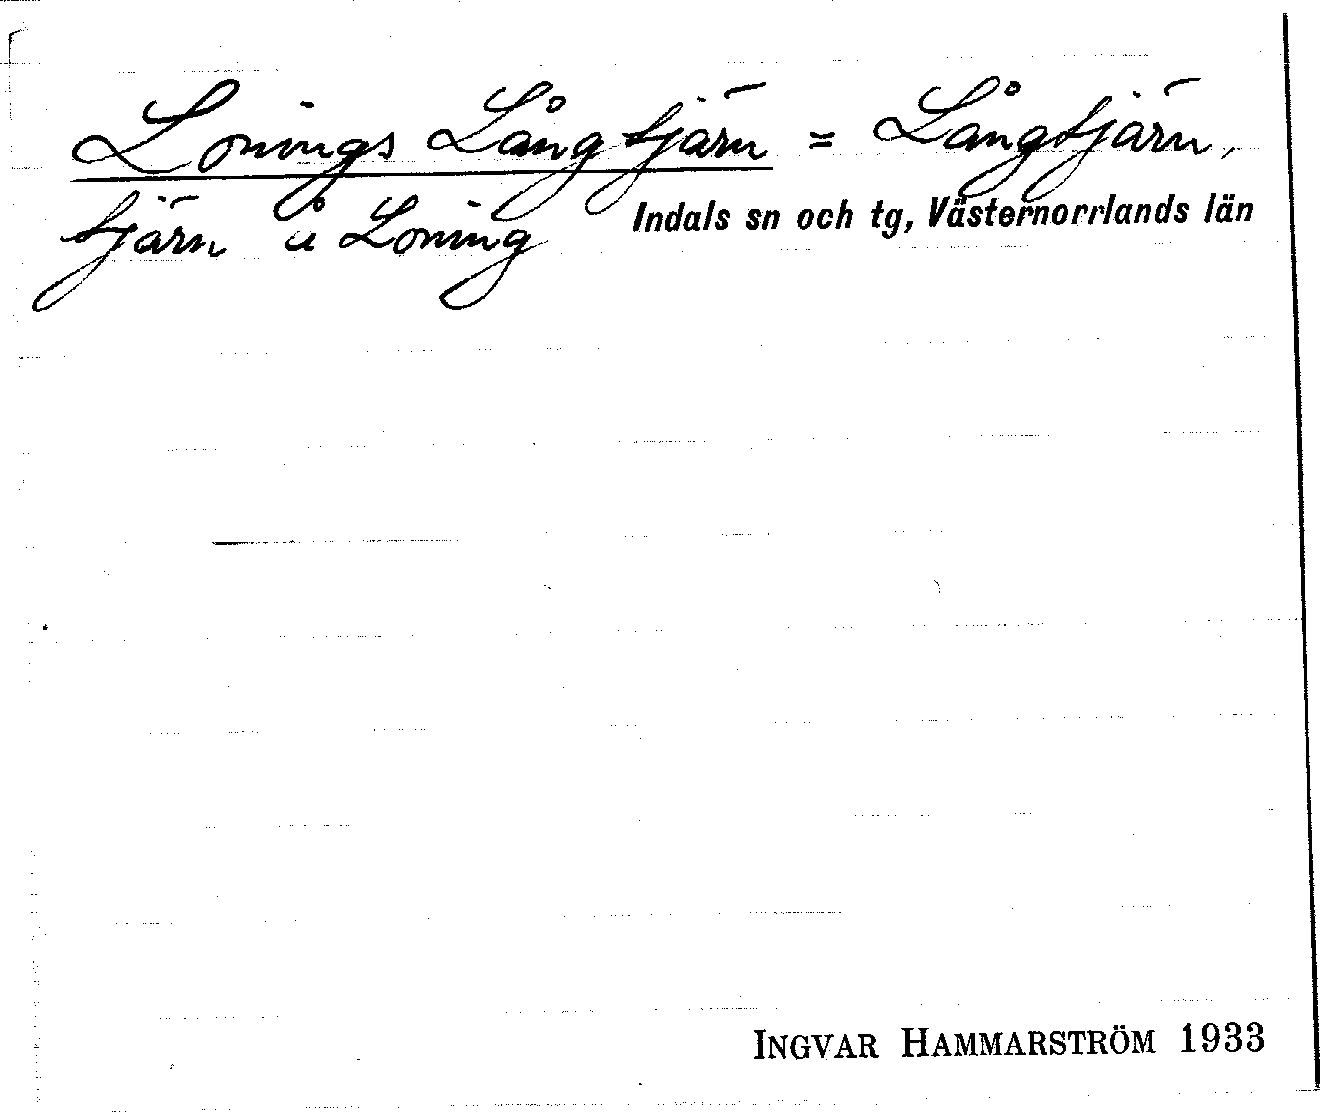 Lonings Långtjärn = Långtjärn,
tjärn å Loning Indals sn och tg, Västernorrlands län
INGVAR HAMMARSTRÖM 1933